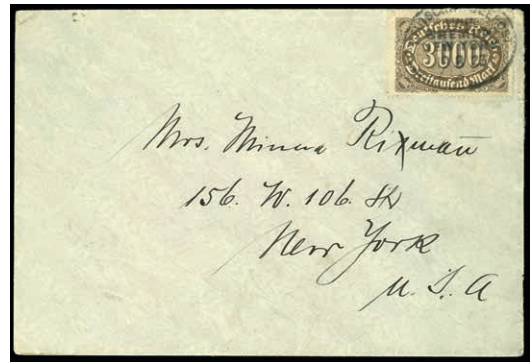 Deutsches Reich
3000
Dreitausend Mark
Mrs. Minna Rixmann
156. W. 106. St
New York
U. S. A